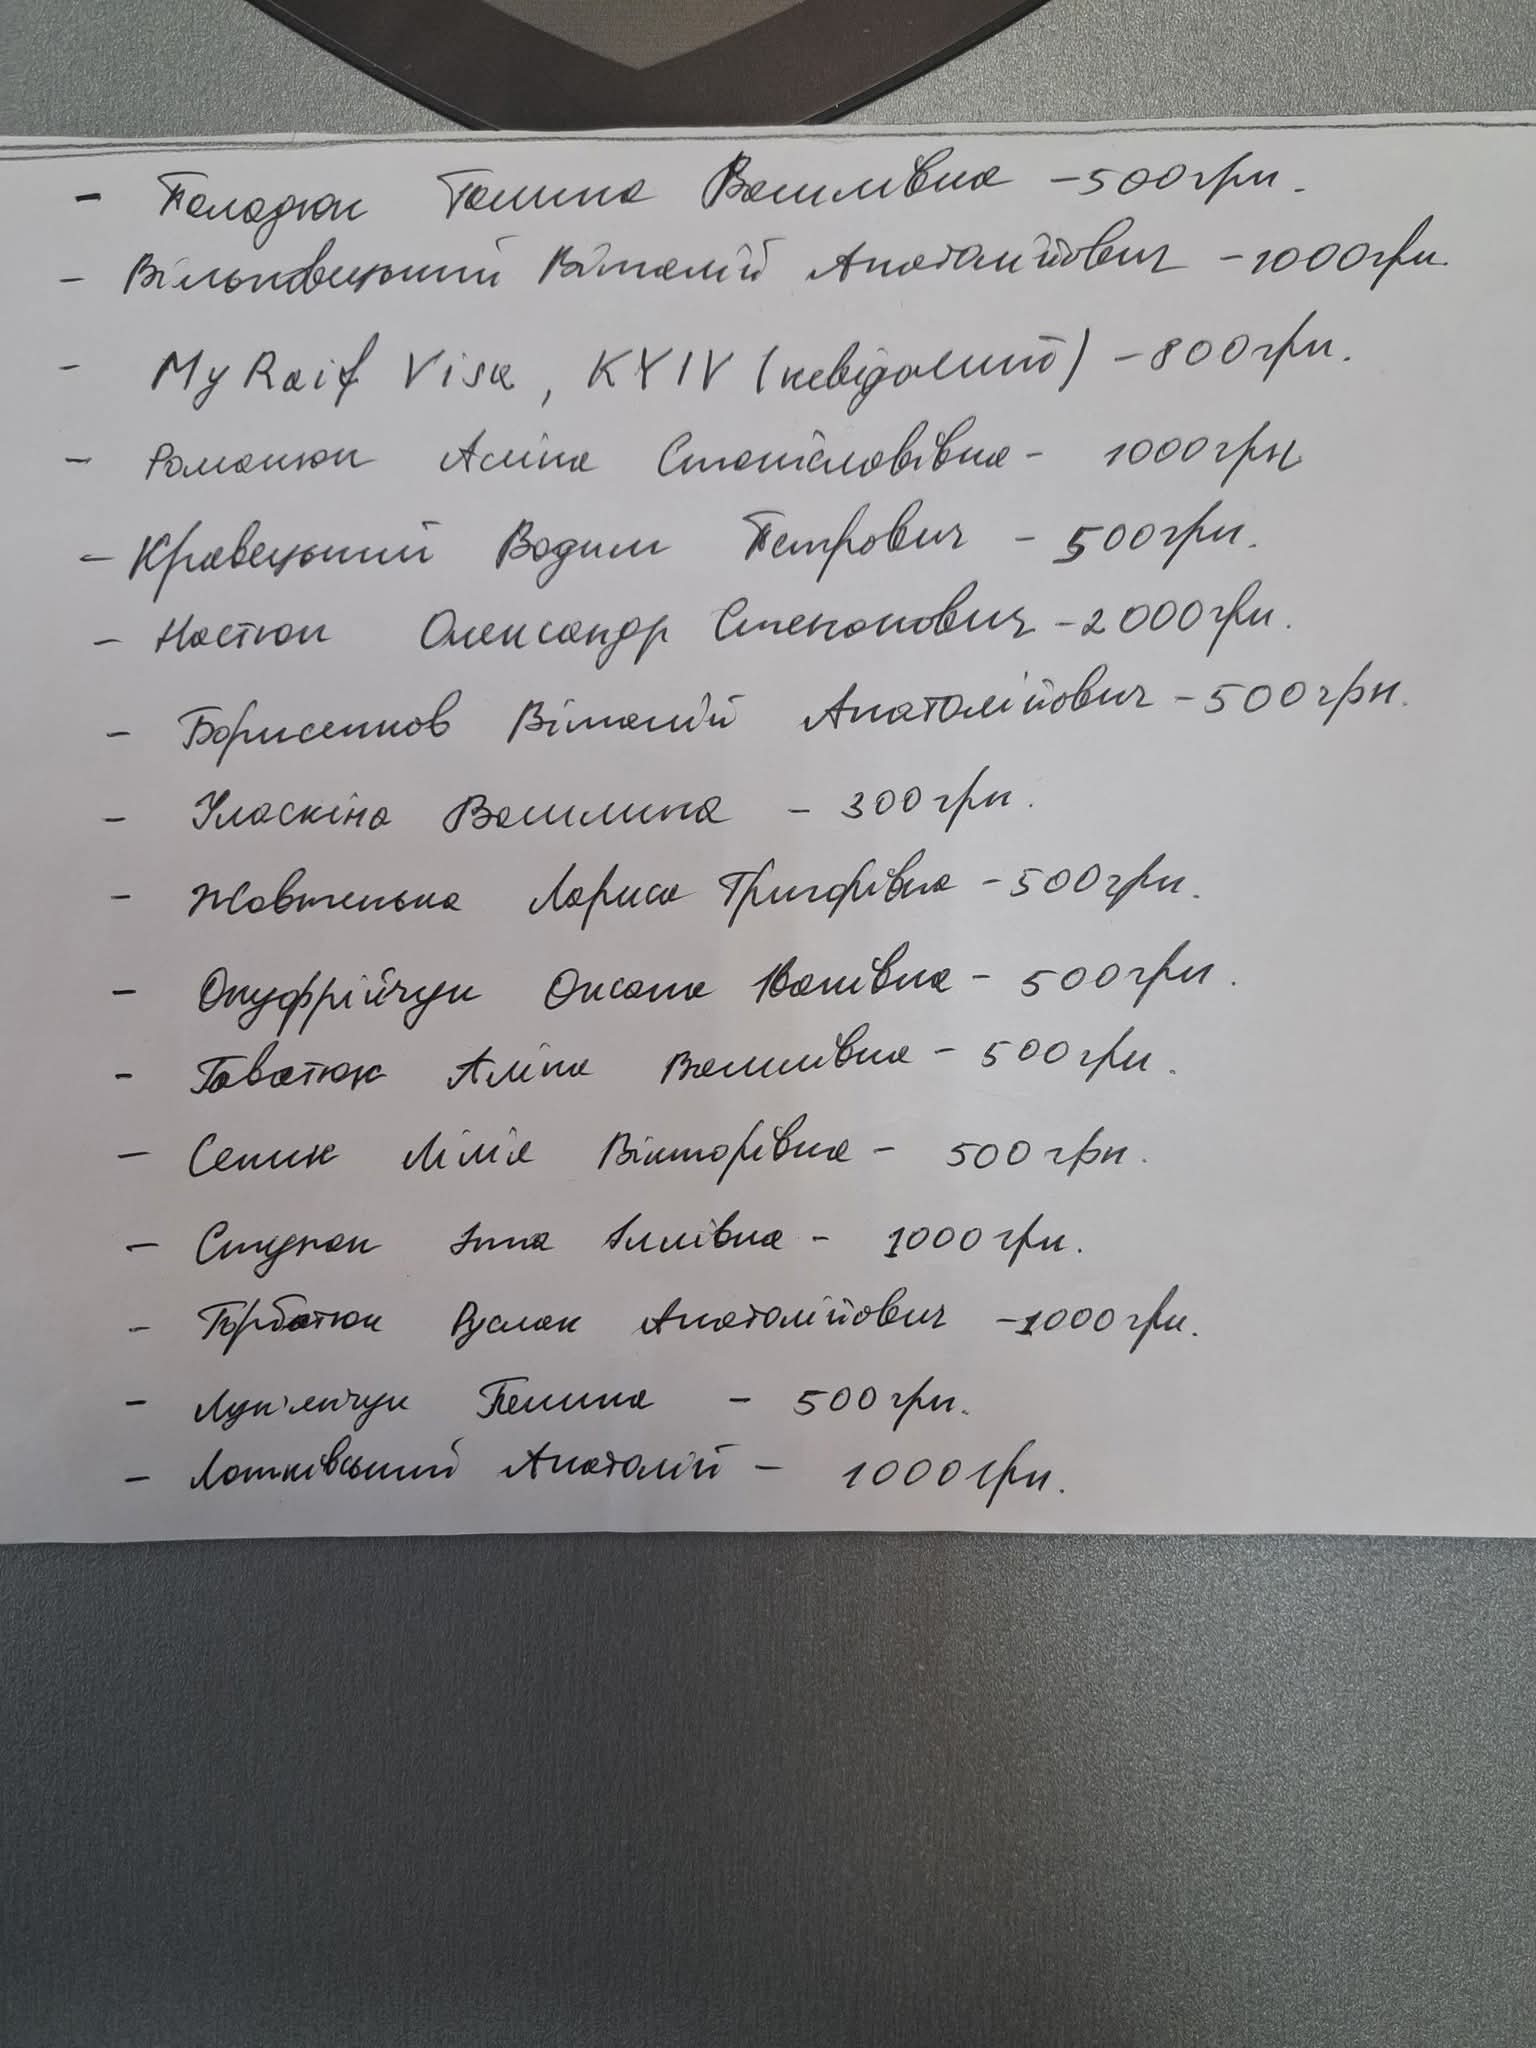 - Паладюк Галина Василівна - 500 грн.
- Вільновецький Віталій Анатолійович - 1000 грн.
- My Raif Visa, KYIV (невідомий) - 800 грн.
- Романюк Аліна Станіславівна - 1000 грн
- Кравецький Вадим Петрович - 500 грн.
- Настюк Олександр Степанович - 2000 грн.
- Борисенков Віталій Анатолійович - 500 грн.
- Уласкіна Василина - 300 грн.
- Жовтенька Лариса Григорівна - 500 грн.
- Онуфрійчук Оксана Іванівна - 500 грн.
- Гаватюк Аліна Василівна - 500 грн.
- Сеник Лілія Вікторівна - 500 грн.
- Інна Іллівна - 1000 грн.
- Горбатюк Руслан Анатолійович - 1000 грн.
- Луп'янчук Галина - 500 грн.
- Лотківський Анатолій - 1000 грн.